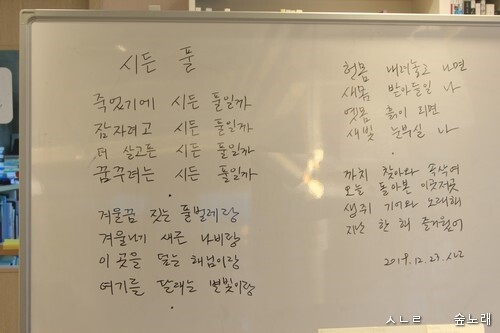 시든 풀
죽었기에 시든 풀일까
잠자려고 시든 풀일까
더 살고픈 시든 풀일까
꿈꾸려는 시든 풀일까
•
겨울꿈 짓는 풀벌레랑
겨울나기 새론 나비랑
이 곳을 덮는 해님이랑
여기를 달래는 별빛이랑
헌몸 내려놓고 나면
새몸 받아들일 나
옛몸 흙이 되면
새빛 눈부실 나
•
까치 찾아와 속삭여
오늘 돌아본 이곳저곳
생쥐 기어와 노래해
지난 한 해 즐거웠어
2019.12.23. ㅅㄴㄹ
ㅅㄴㄹ 숲노래